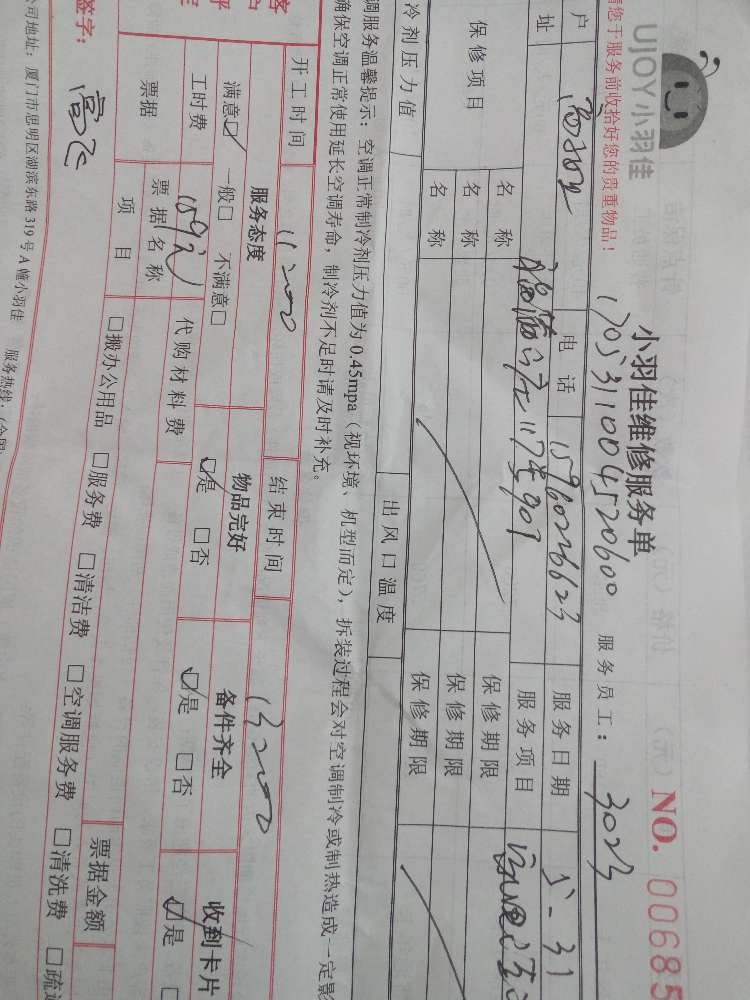 UJOY小羽佳
小羽佳维修服务单
NO. 00685
请您于服务前收拾好您的贵重物品！
1705311004520600
服务员工： 3023
户
电话 15960226623
服务日期 5-31
址
服务项目
保修项目
名称
保修期限
名称
保修期限
名称
保修期限
冷剂压力值
出风口温度
调服务温馨提示：空调正常制冷剂压力值为0.45mpa（视环境、机型而定），拆装过程会对空调制冷或制热造成一定影
确保空调正常使用延长空调寿命，制冷剂不足时请及时补充。
开工时间 11:00
结束时间 13:00
服务态度
物品完好
备件齐全
收到卡片
满意☑ 一般□ 不满意□
☑是 □否
☑是 □否
☑是
工时费 159元
代购材料费
票据
票据名称
票据金额
项目
□搬办公用品 □服务费 □清洁费 □空调服务费 □清洗费 □疏通
签字：
公司地址：厦门市思明区湖滨东路319号A幢小羽佳
服务热线：